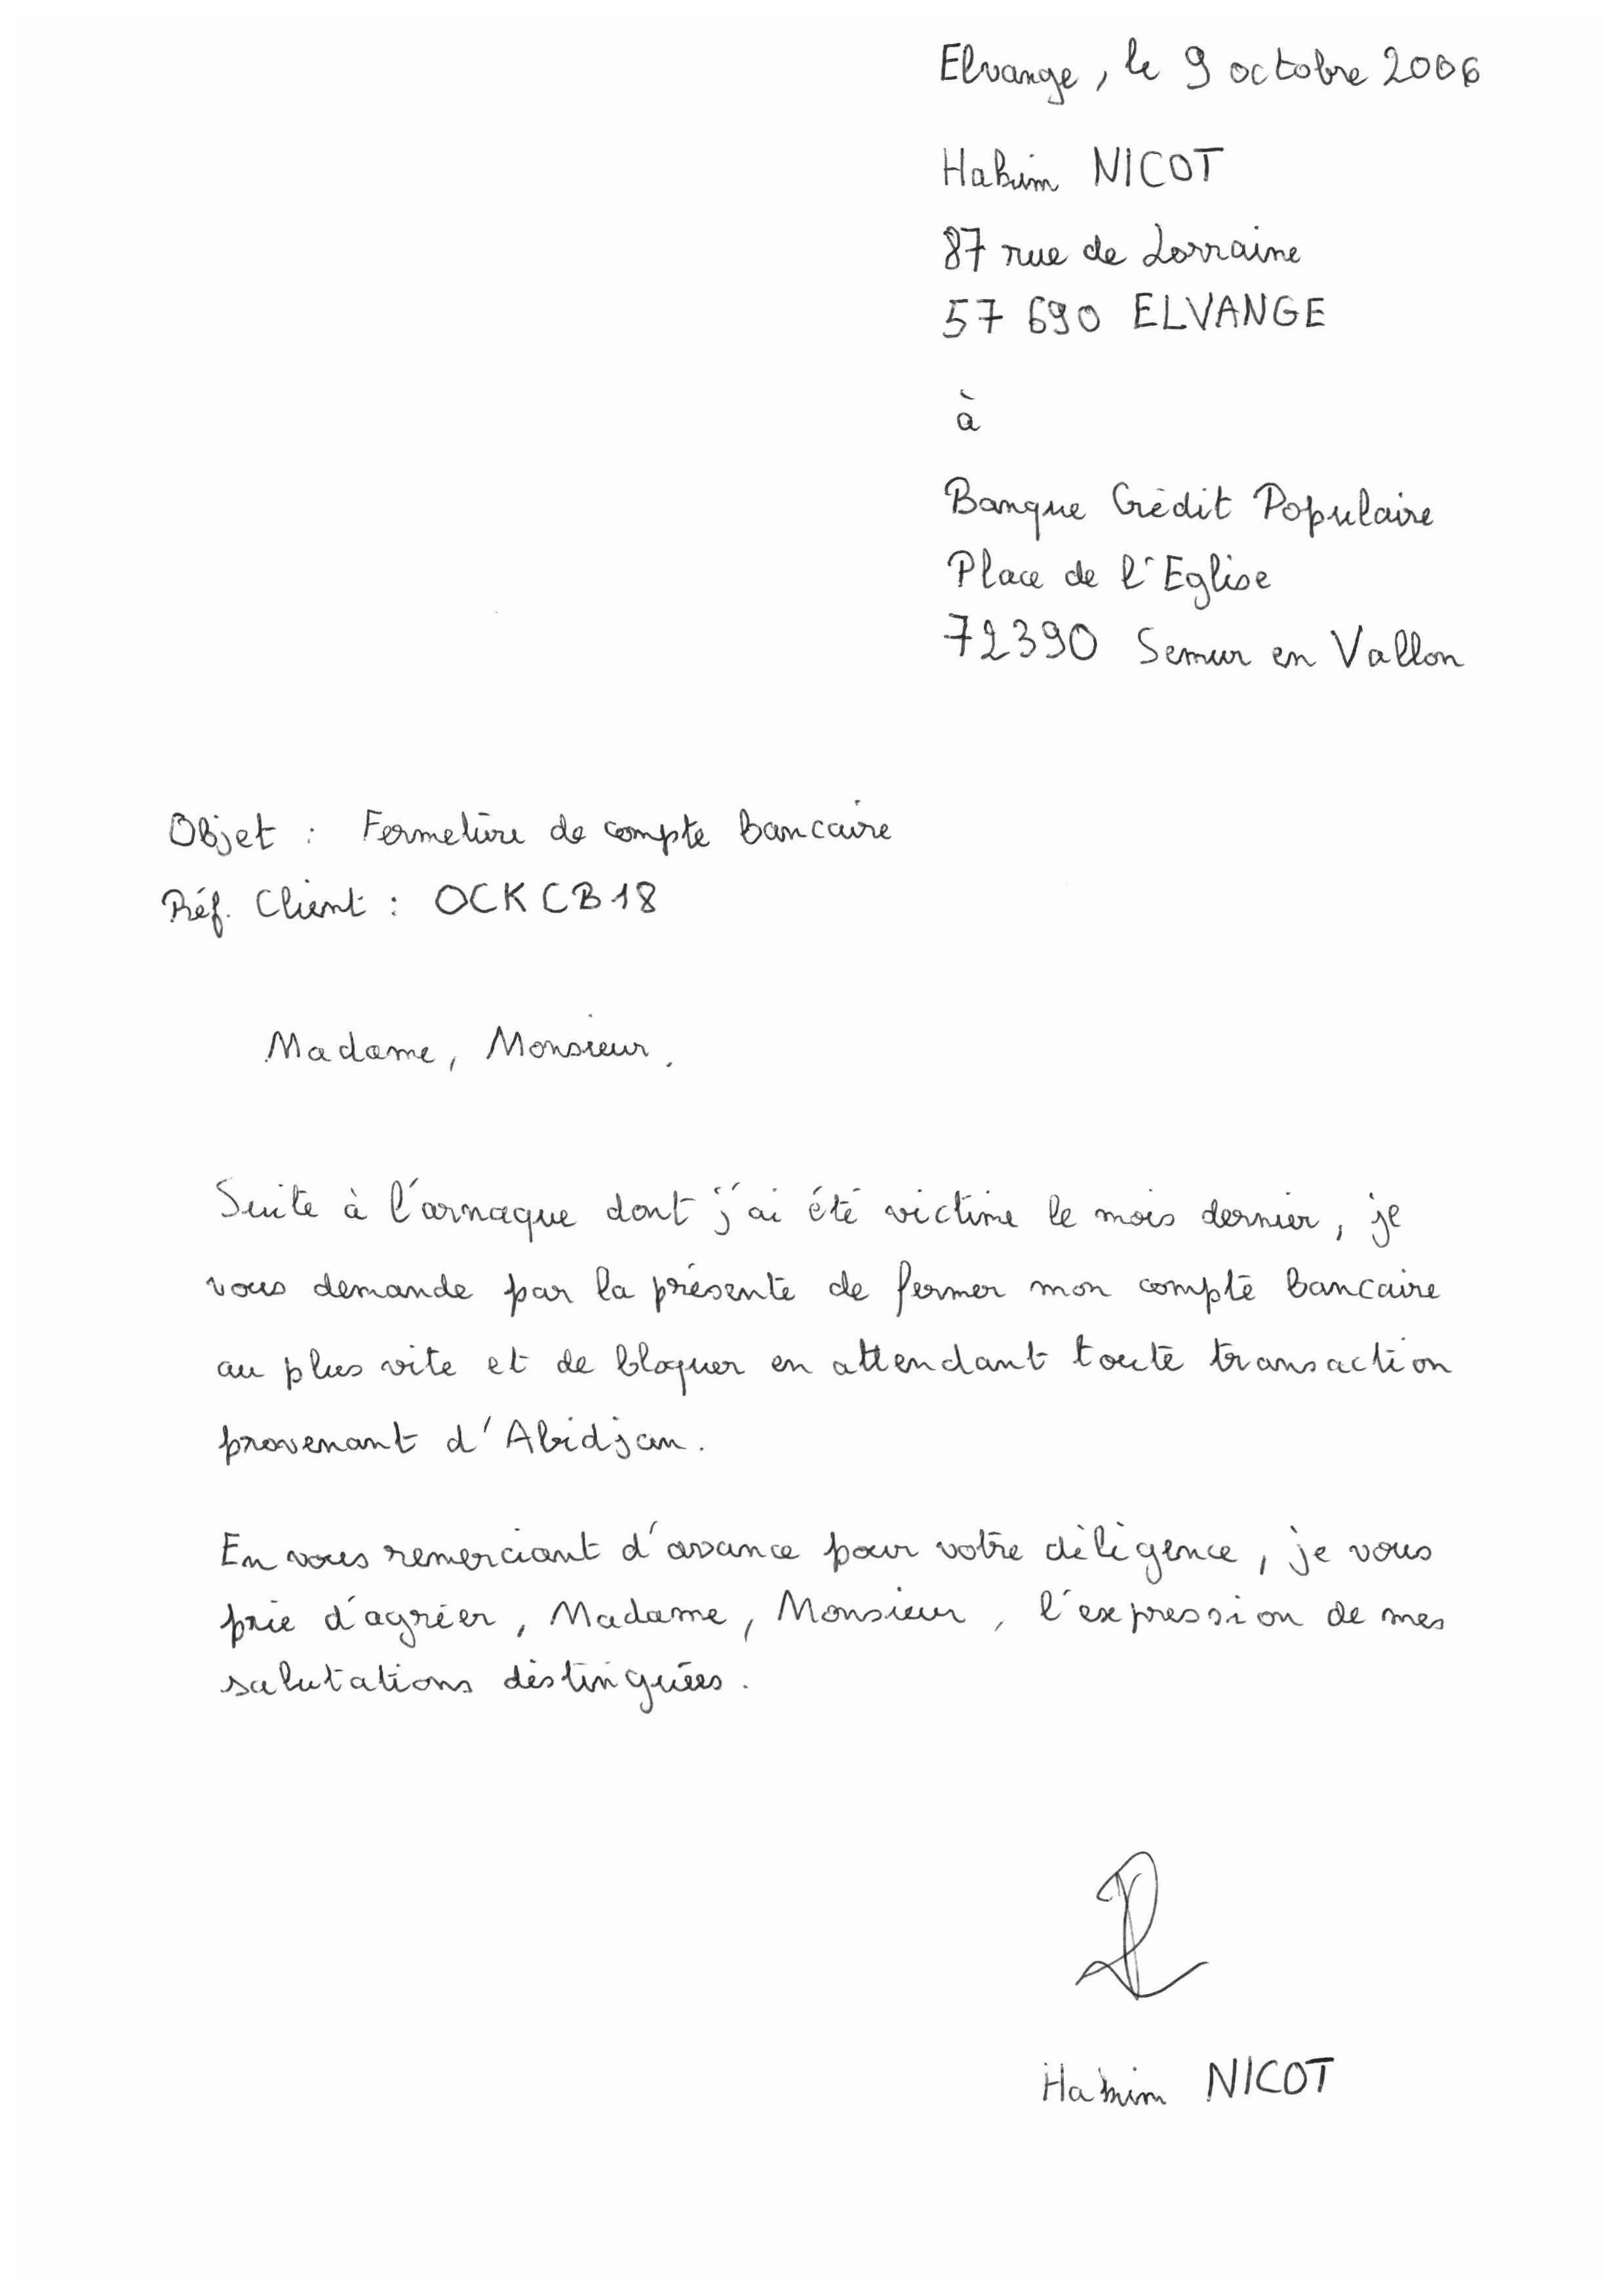 Elvange, le 9 octobre 2006
Hakim NICOT
87 rue de Lorraine
57 690 ELVANGE
à
Banque Crédit Populaire
Place de l'Eglise
72390 Semur en Vallon
Objet : Fermeture de compte bancaire
Réf. Client : OCKCB18
Madame, Monsieur,
Suite à l'arnaque dont j'ai été victime le mois dernier, je
vous demande par la présente de fermer mon compte bancaire
au plus vite et de bloquer en attendant toute transaction
provenant d'Abidjan.
En vous remerciant d'avance pour votre diligence, je vous
prie d'agréer, Madame, Monsieur, l'expression de mes
salutations distinguées.
Hakim NICOT